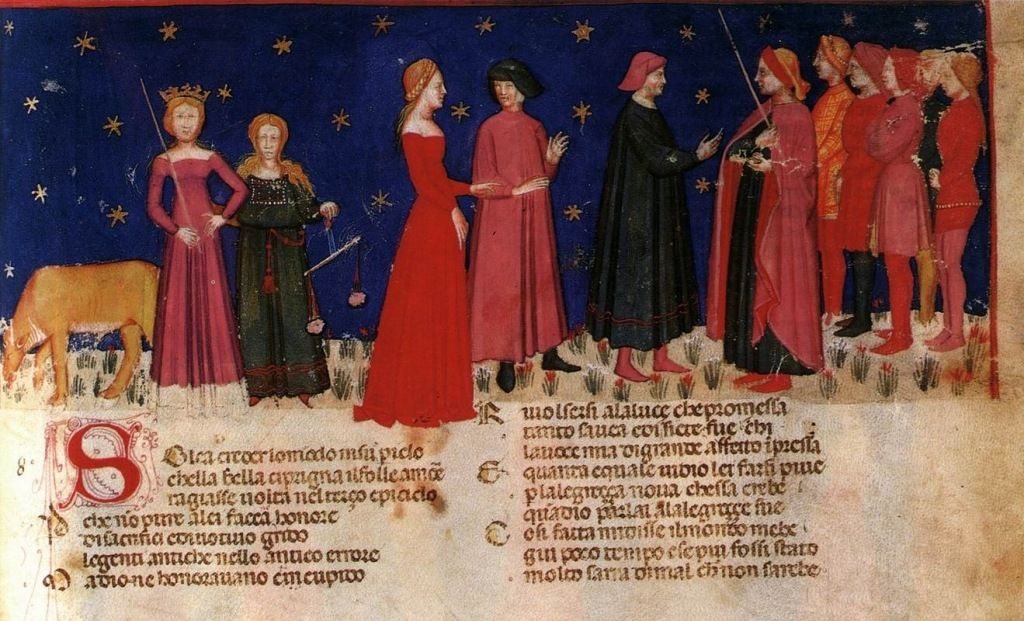 Solea creder lo mondo in su piclo
che la bella ciprigna il folle amore
ragiasse uolta nel terço epiciclo
che no pure a lei facea honore
di sacrifici e di uotiuo grido
le genti antiche nello antico errore
Ma dione honorauano e cupido
Riuolsersi a la luce che promessa
tanto sauea
la uoce mia di grande affetto ipressa
E quanta e quale uidio lei far piue
p la legreça noua
quadio parlai a lalegreçe sue
Cosi fatta mi disse il mondo mebe
giu poco tempo e se piu fossi stato
molto sara di mal ch non sarebe